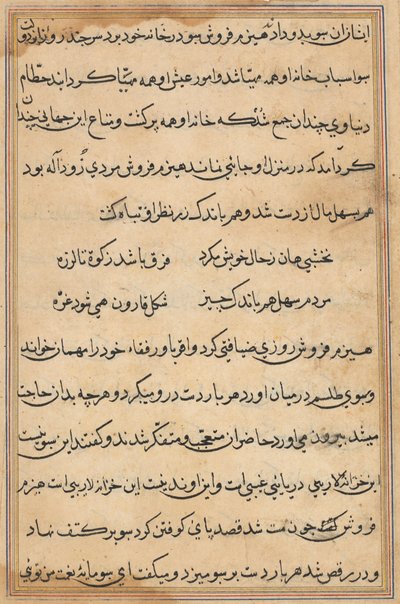 انبازان سبو بدو دادند هیزم فروش سبو در خانه خود برد سر چند روز از دولت
سبو اسباب خانه او همه مهیّا شد و امور عیش او همه مهیّا حطام
دنیاوی چندان جمع شد که خانه او همه پر گشت و متاع این جهانی چندان
گرد آمد که در منزل او جائی نماند هیزم فروش مردی بود
هم بسهل مال از دست شد و هم باندک زر نظر او تباه گشت
نخشبی هان ز حال خویش مگرد فرق باشد ز کوه تا لرزه
مردم سهل هم باندک چیز شکل قارون همی شود غرّه
هیزم فروش روزی ضیافتی کرد و اقربا و رفقاء خود را مهمان خواند
و سبوی طلسم در میان اورد هر بار دست درو میکرد و هر چه بدان حاجت
میشد بیرون می اورد حاضران متعجّب و متفکّر شدند و گفتند این سبو نیست
این دریائی غیبی است و این اوند نیست این خزانه لاریبی است هیزم
فروش چون مست شد قصد پای کوفتن کرد سبو بر کتف نهاد
و در رقص شد هر بار دست بر سبو میزد و میگفت ای سبو مایه بخت من توئی